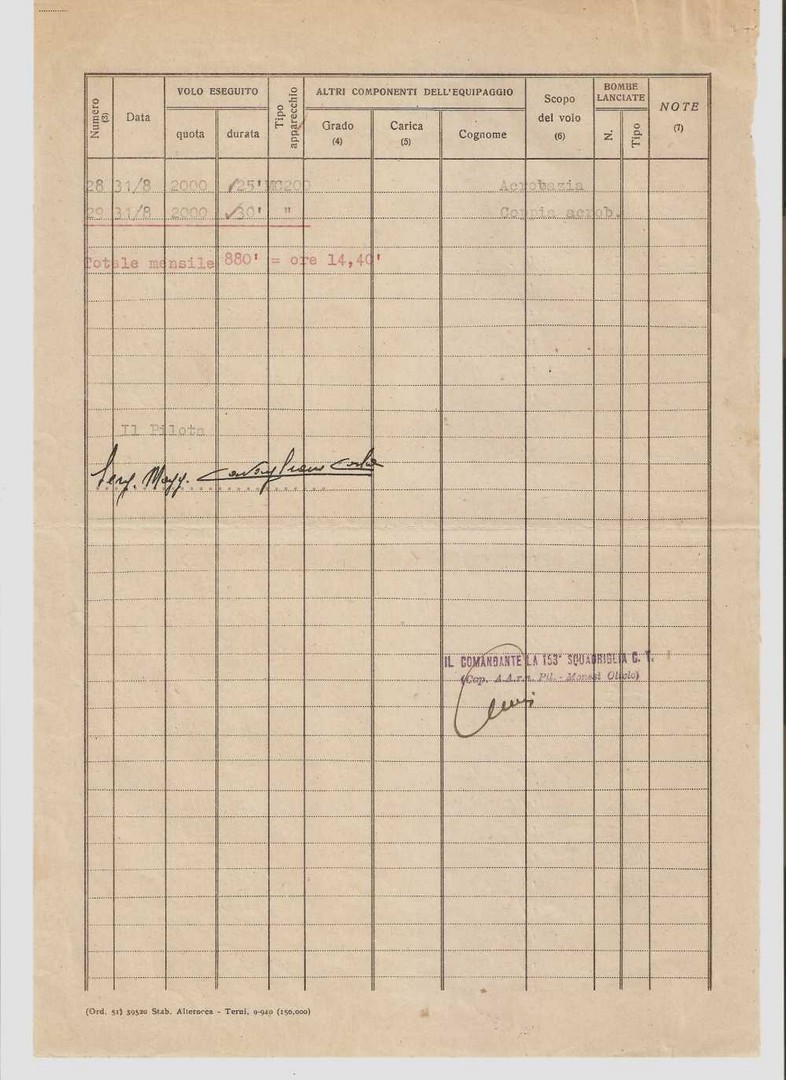 VOLO ESEGUITO ALTRI COMPONENTI DELL'EQUIPAGGIO BOMBE LANCIATE
Numero (3) Data quota durata Tipo apparecchio Grado (4) Carica (5) Cognome Scopo del volo (6) N. Tipo NOTE (7)
28 31/8 2000 25' MC200 Acrobazia
29 31/8 2000 30' " Coppia acrob.
Totale mensile 880' = ore 14,40'
Il Pilota
Serg. Magg.
IL COMANDANTE LA 153ª SQUADRIGLIA C. T.
(Cap. A.A.r.n. Pil. - Monesi
(Ord. 51) 39520 Stab. Alterocca - Terni, 9-940 (150,000)